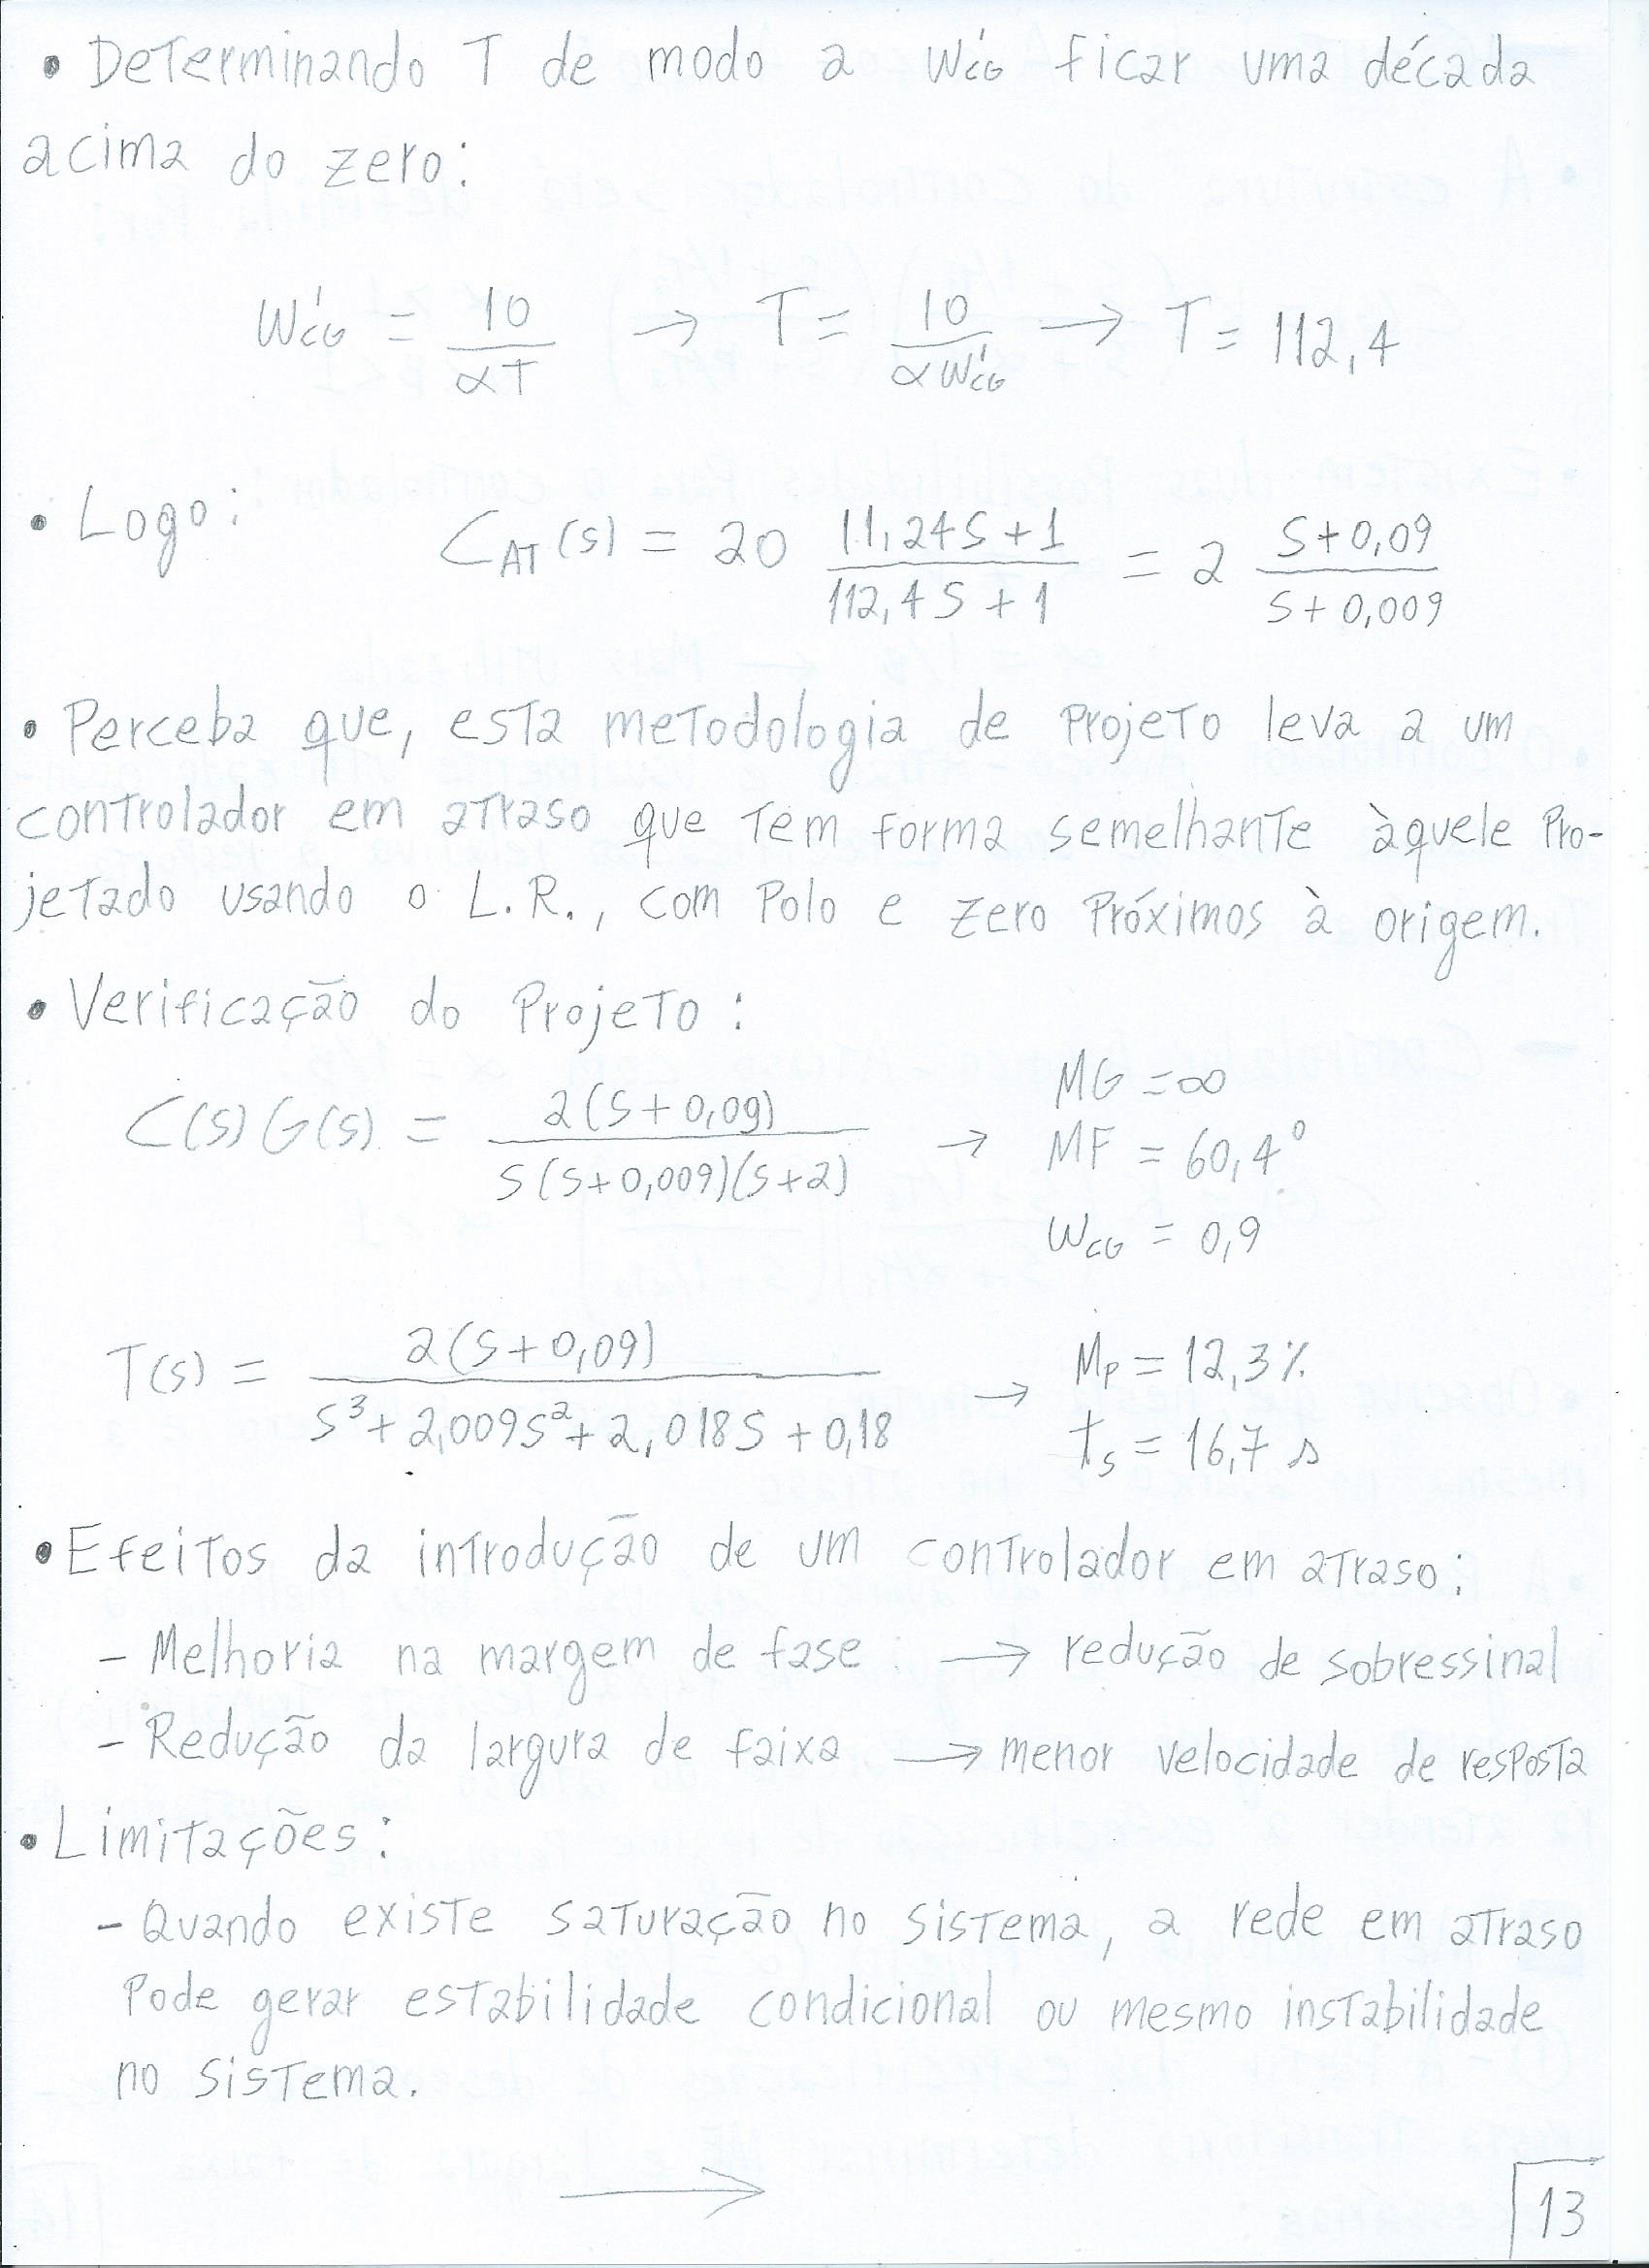 • Determinando T de modo a W'CG ficar uma década
acima do zero:
W'CG = 10/αT → T = 10/αW'CG → T = 112,4
• Logo: CAT(s) = 20 (11,24S+1)/(112,4S+1) = 2 (S+0,09)/(S+0,009)
• Perceba que, esta metodologia de projeto leva a um
controlador em atraso que tem forma semelhante àquele pro-
jetado usando o L.R., com polo e zero próximos à origem.
• Verificação do projeto:
C(s)G(s) = 2(S+0,09)/S(S+0,009)(S+2) → MG = ∞
MF = 60,4°
WCG = 0,9
T(s) = 2(S+0,09)/S³+2,009S²+2,018S+0,18 → Mp = 12,3%
ts = 16,7 s
• Efeitos da introdução de um controlador em atraso:
- Melhoria na margem de fase → redução de sobressinal
- Redução da largura de faixa → menor velocidade de resposta
• Limitações:
- Quando existe saturação no sistema, a rede em atraso
pode gerar estabilidade condicional ou mesmo instabilidade
no sistema.
→
13